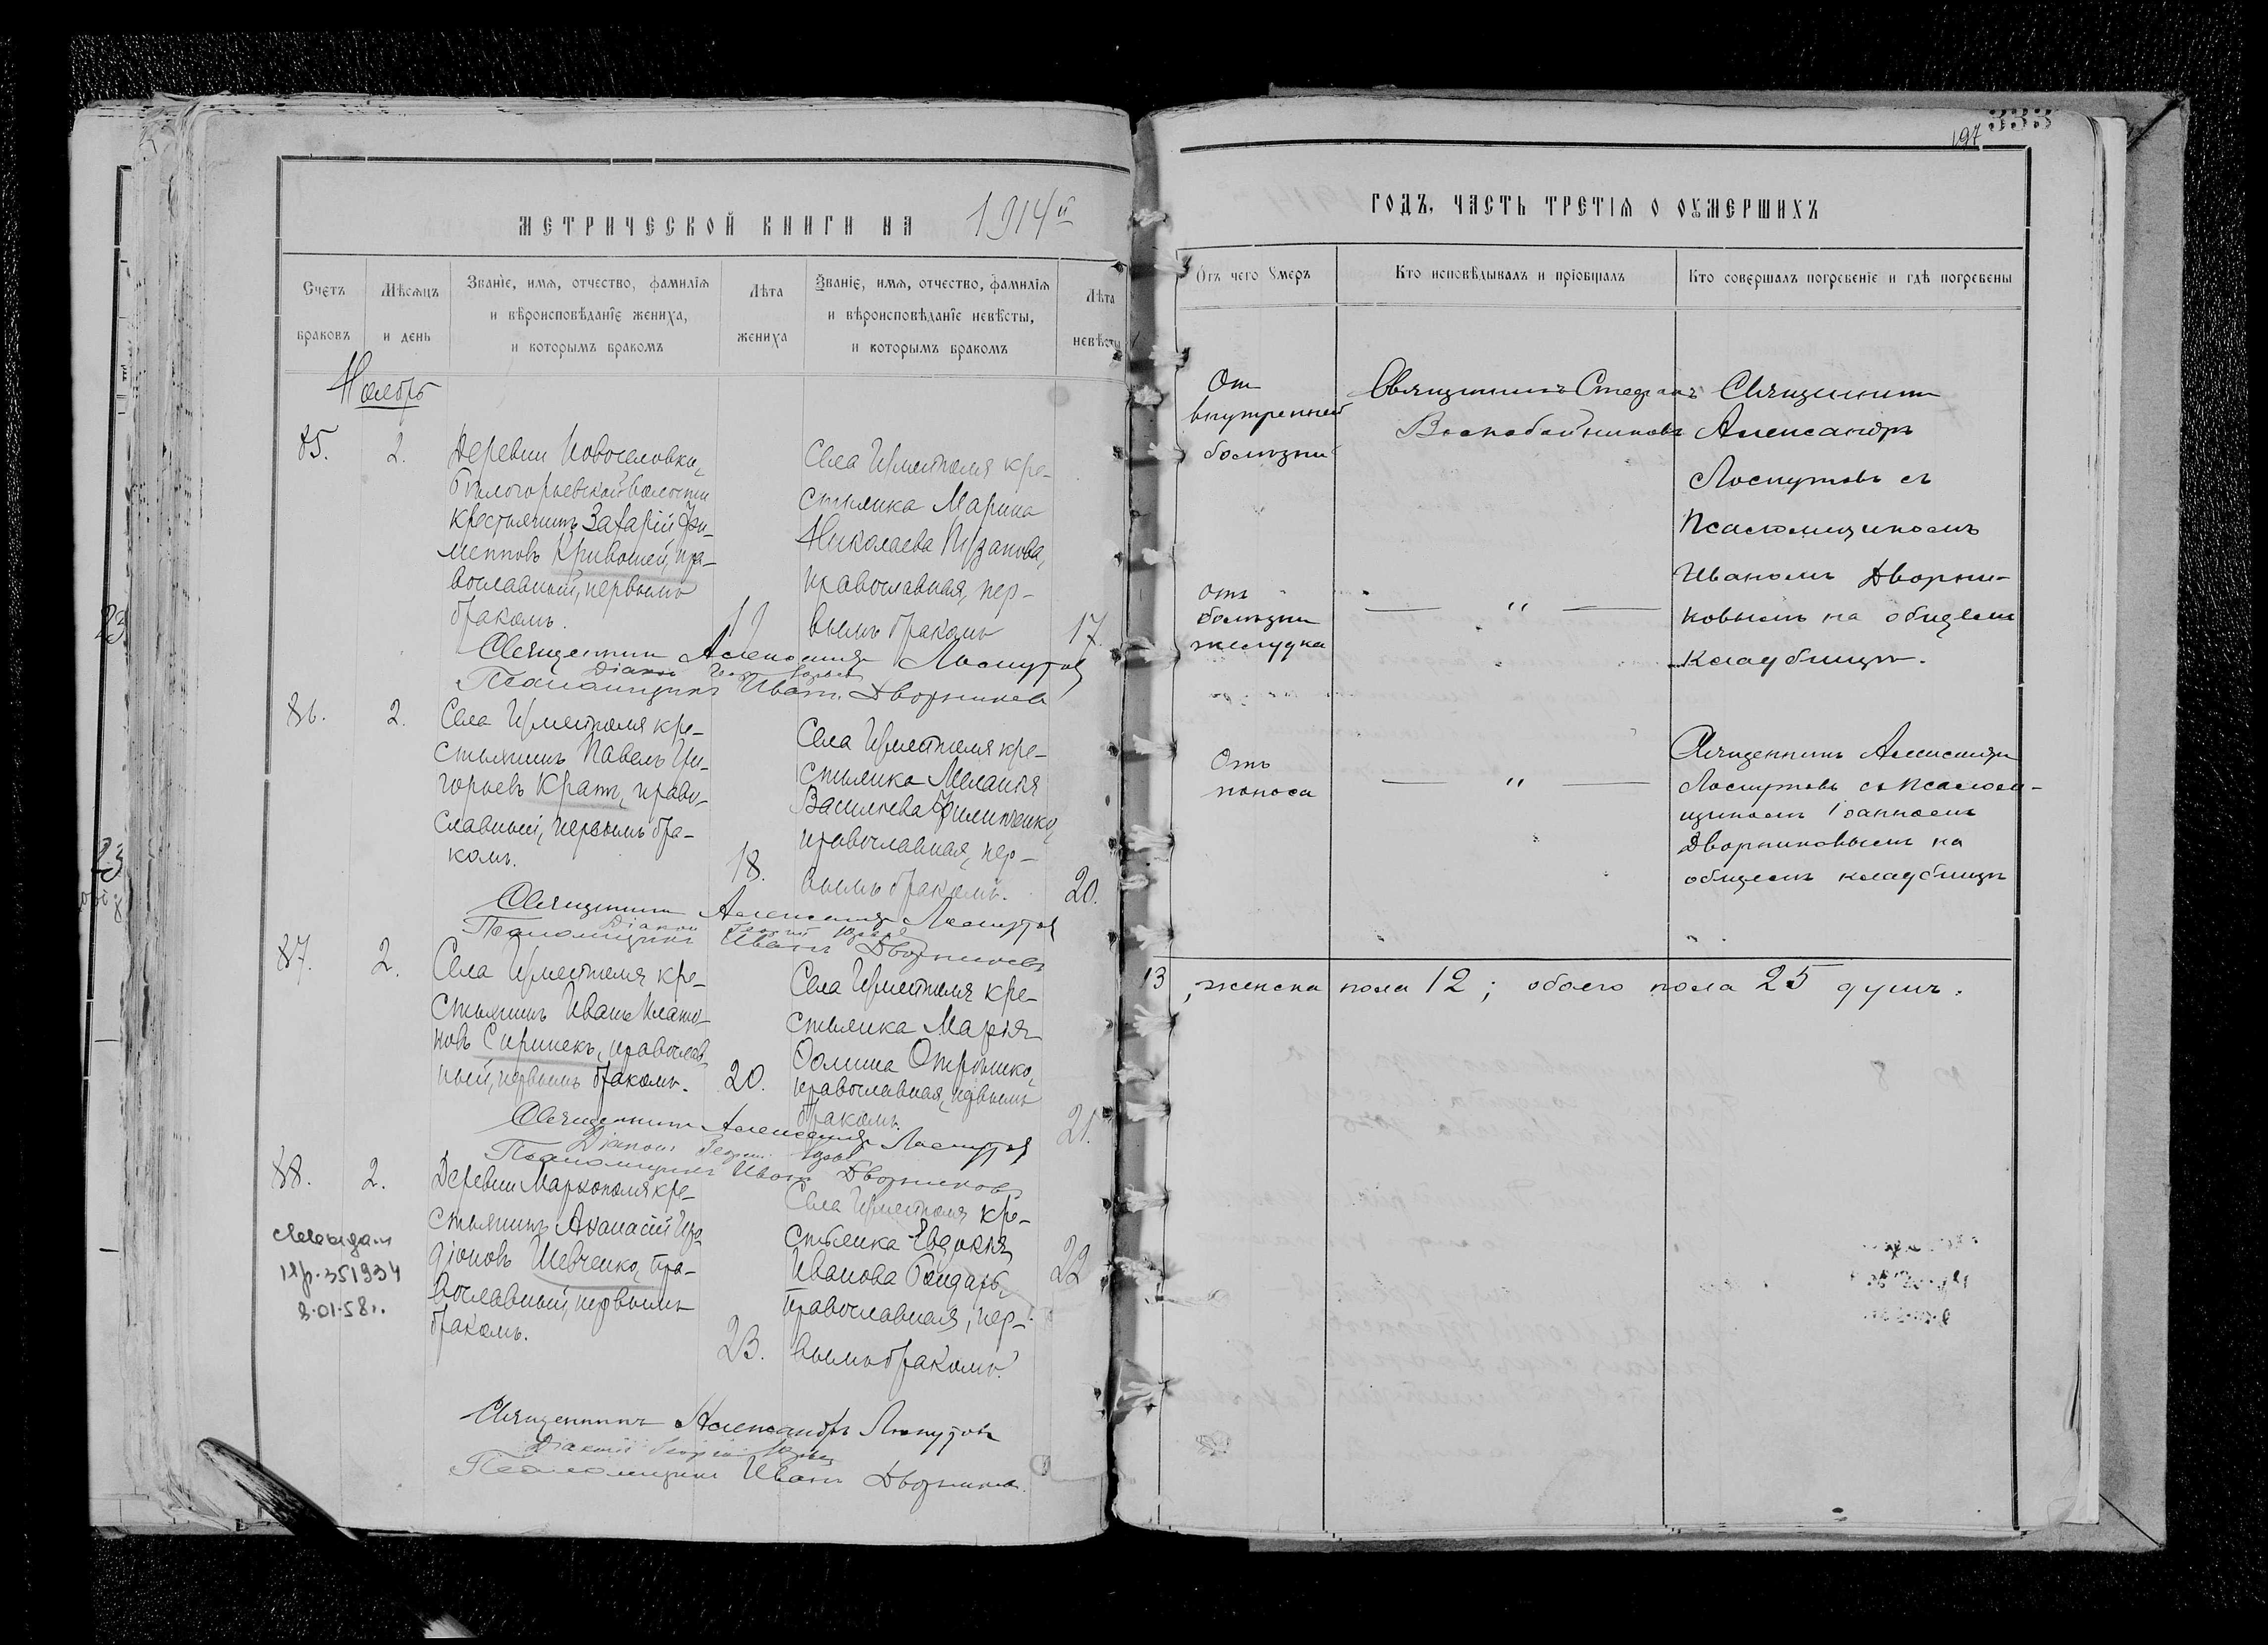 МЕТРИЧЕСКОЙ КНИГИ НА 1914й
Счетъ браковъ
Мѣсяцъ и день
Званіе, имя, отчество, фамилія
и вѣроисповѣданіе жениха,
и которымъ бракомъ
Лѣта жениха
Званіе, имя, отчество, фамилія
и вѣроисповѣданіе невѣсты,
и которымъ бракомъ
Лѣта невѣсты
Ноябрь
85.
2.
Деревни Новоселовки,
Бѣлогорьевской волости
крестьянинъ Захарій
Кривошей, пра-
вославный, первымъ
бракомъ.
Села Ирмственя кре-
стьянка Марина
Николаева Пузанова,
православная, пер-
вымъ бракомъ
17.
Священникъ Александръ Лоскутовъ
Діаконъ
Псаломщикъ Иванъ Дворниковъ
86.
2.
Села кре-
стьянинъ Павелъ Гри-
горьевъ Кратъ, право-
славный, первымъ бра-
комъ.
18.
Села кре-
стьянка Меланія
Васильева Филипченко,
православная, пер-
вымъ бракомъ.
20.
Священникъ Александръ Лоскутовъ
Діаконъ Георгій
Псаломщикъ Иванъ Дворниковъ
87.
2.
Села кре-
стьянинъ Иванъ Плато-
новъ Сиринекъ, православ-
ный, первымъ бракомъ.
20.
Села кре-
стьянка Марія
православная, первымъ
бракомъ.
21.
Священникъ Александръ Лоскутовъ
Діаконъ Георгій
Псаломщикъ Иванъ Дворниковъ
88.
2.
Деревни Маркополя кре-
стьянинъ Аѳанасій Иро-
діоновъ Шевченко, пра-
вославный, первымъ
бракомъ.
23.
Села кре-
стьянка Евдокія
Иванова Бондарь,
православная, пер-
вымъ бракомъ.
22
351934
8.01.58г.
Священникъ Александръ Лоскутовъ
Діаконъ Георгій
Псаломщикъ Иванъ Дворниковъ
333
197
ГОДЪ, ЧАСТЬ ТРЕТІЯ О ОУМЕРШИХЪ
Отъ чего умеръ
Кто исповѣдывалъ и пріобщалъ
Кто совершалъ погребеніе и гдѣ погребены
От
внутренней
болѣзни
Священникъ Стефанъ
Воскобойниковъ
Священникъ
Александръ
Лоскутовъ съ
псаломщикомъ
Иваномъ Дворни-
ковымъ на общемъ
кладбищѣ.
Отъ
болѣзни
желудка
— " —
Отъ
поноса
— " —
Священникъ Александръ
Лоскутовъ съ псалом-
щикомъ Іоанномъ
Дворниковымъ на
общемъ кладбищѣ
13, женска пола 12; обоего пола 25 душъ.